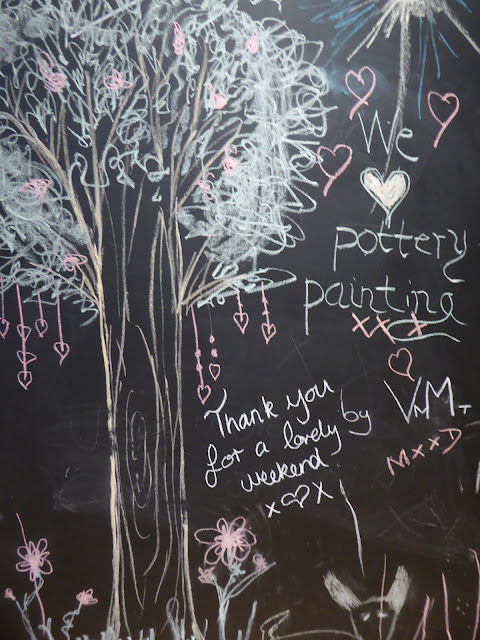 We
♥
pottery
painting
xxx
Thank you
for a lovely
weekend
x♡x
by
M x x D